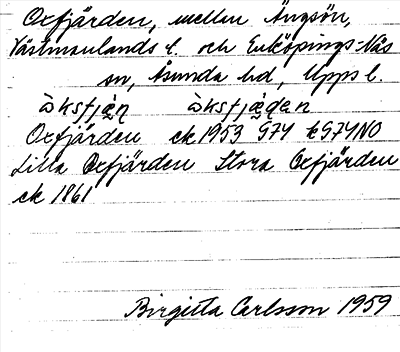 Oxfjärden, mellan Ängsön,
Västmanlands l. och Enköpings-Näs
sn, Åsunda hd, Upps l.
òksfjæ̀n òksfjæ̀ḍen
Oxfjärden ek 1953 G74 & G74NO
Lilla Oxfjärden Stora Oxfjärden
ek 1861
Birgitta Carlsson 1959